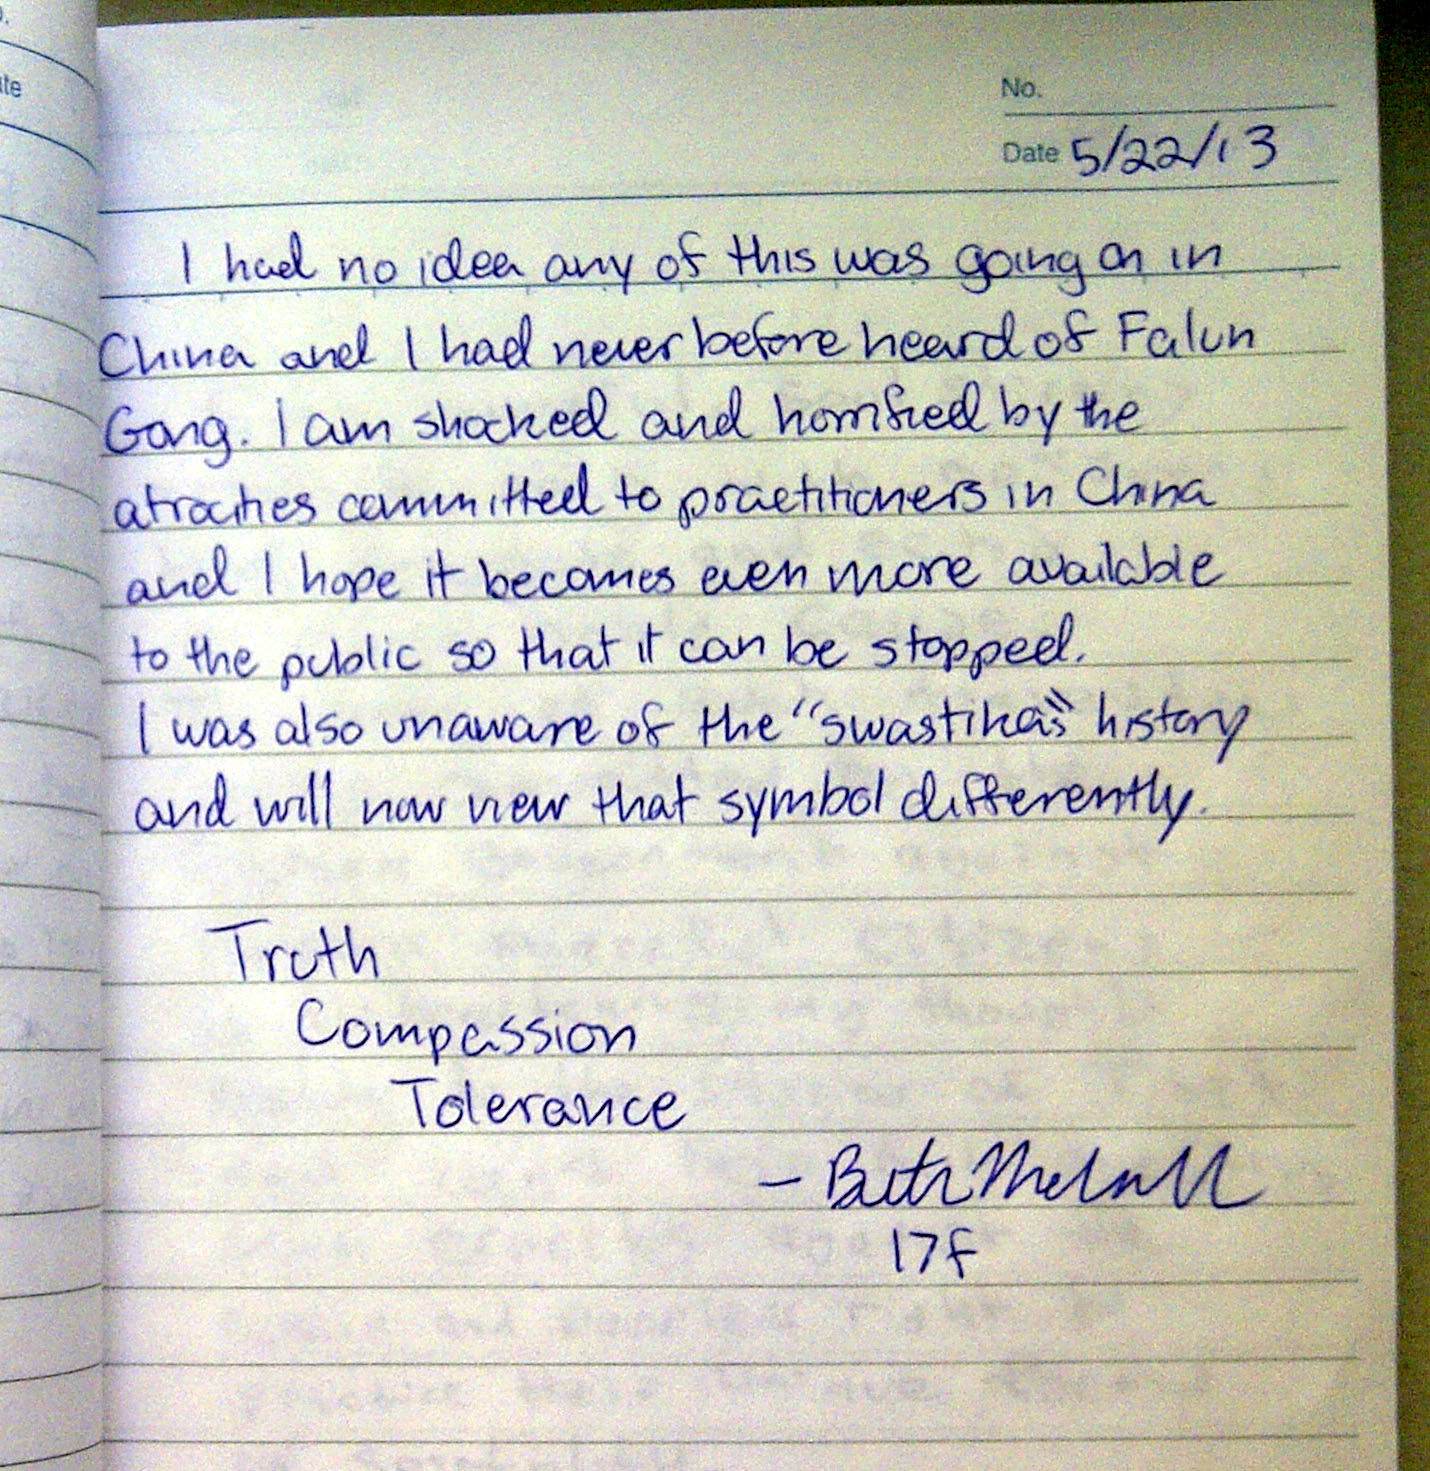 No.
Date 5/22/13
I had no idea any of this was going on in
China and I had never before heard of Falun
Gong. I am shocked and horrified by the
atrocities committed to practitioners in China
and I hope it becomes even more available
to the public so that it can be stopped.
I was also unaware of the "swastika's" history
and will now view that symbol differently.
Truth
Compassion
Tolerance
- Beth
17f